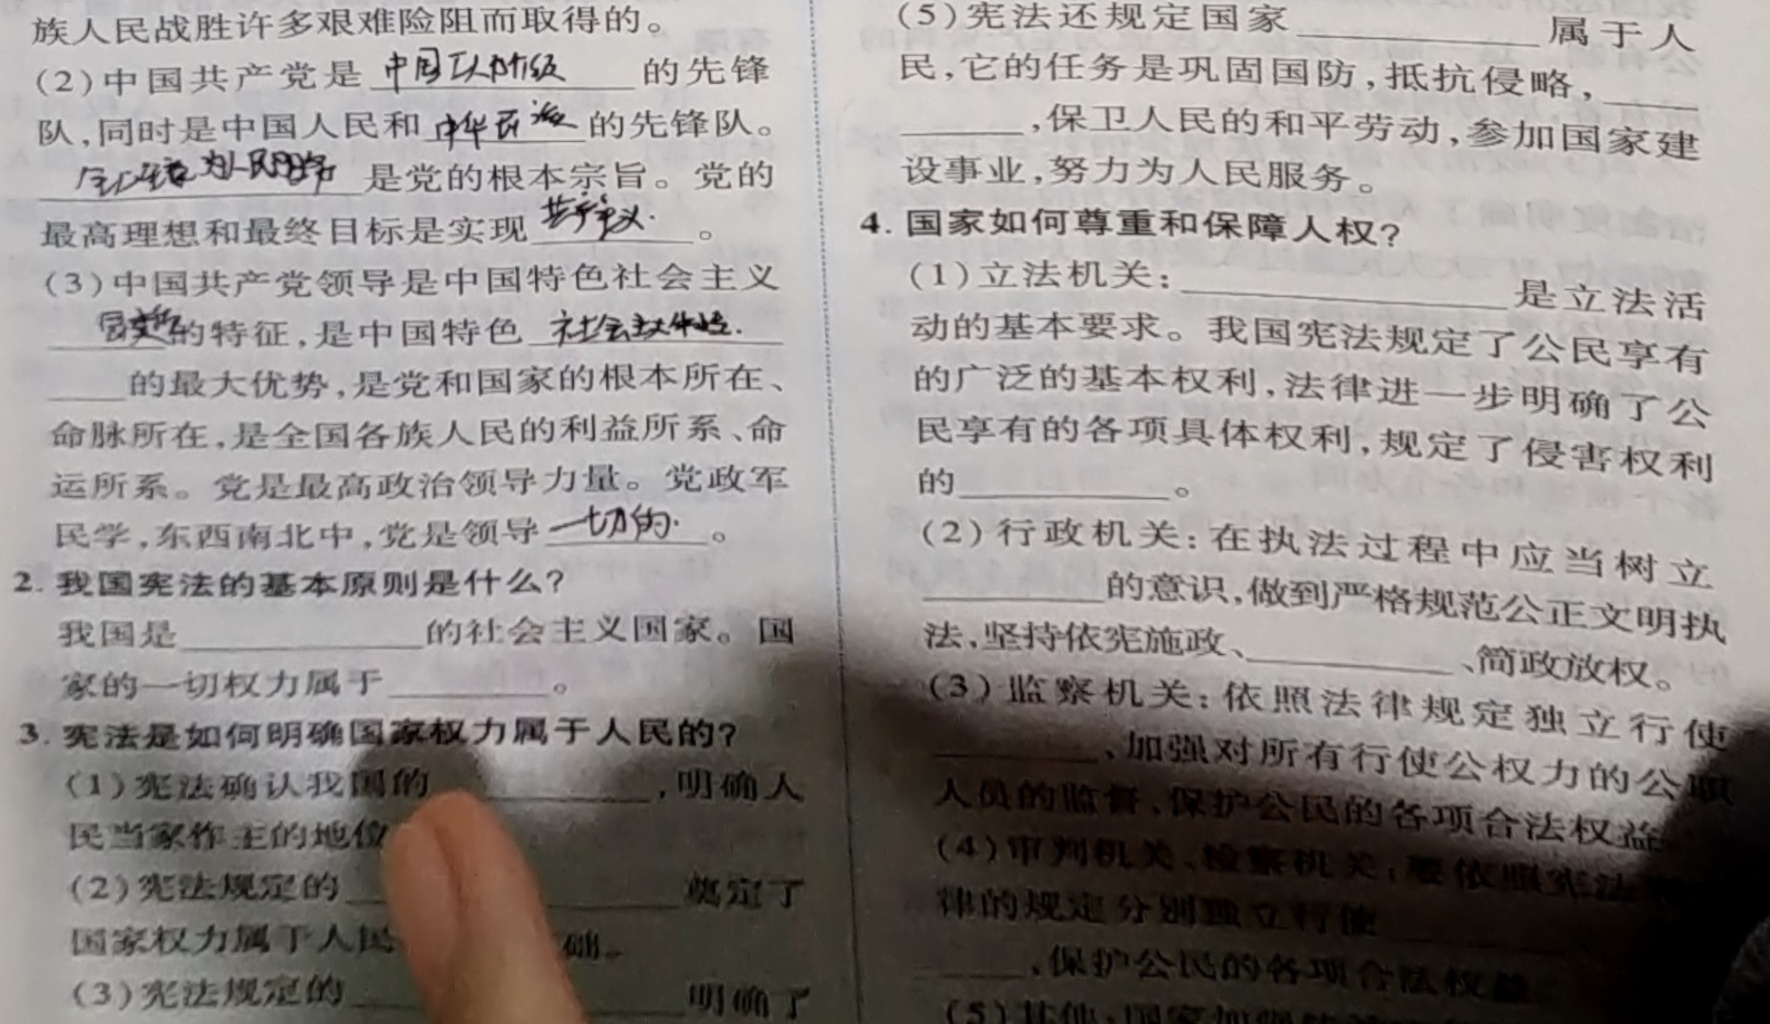 族人民战胜许多艰难险阻而取得的。
(2)中国共产党是 中国工人阶级 的先锋
队,同时是中国人民和 中华民族 的先锋队。
全心全意为人民服务 是党的根本宗旨。党的
最高理想和最终目标是实现 共产主义. 。
(3)中国共产党领导是中国特色社会主义
的特征,是中国特色
____的最大优势,是党和国家的根本所在、
命脉所在,是全国各族人民的利益所系、命
运所系。党是最高政治领导力量。党政军
民学,东西南北中,党是领导 一切的. 。
2. 我国宪法的基本原则是什么?
我国是____的社会主义国家。国
家的一切权力属于____。
3. 宪法是如何明确国家权力属于人民的?
(1)宪法确认我国的____,明确人
民当家作主的地位
(2)宪法规定的____奠定了
国家权力属于人民 础。
(3)宪法规定的____明确了
(5)宪法还规定国家____属于人
民,它的任务是巩固国防,抵抗侵略,____
____,保卫人民的和平劳动,参加国家建
设事业,努力为人民服务。
4. 国家如何尊重和保障人权?
(1)立法机关:____是立法活
动的基本要求。我国宪法规定了公民享有
的广泛的基本权利,法律进一步明确了公
民享有的各项具体权利,规定了侵害权利
的____。
(2)行政机关:在执法过程中应当树立
____的意识,做到严格规范公正文明执
法,坚持依宪施政、____、简政放权。
(3)监察机关:依照法律规定独立行使
____、加强对所有行使公权力的公职
人员的监督,保护公民的各项合法权益
(4)审判机关、检察机关:要依照宪法
律的规定分别独立行使____
____,保护公民的各项合法权益
(5)其他:国家加强